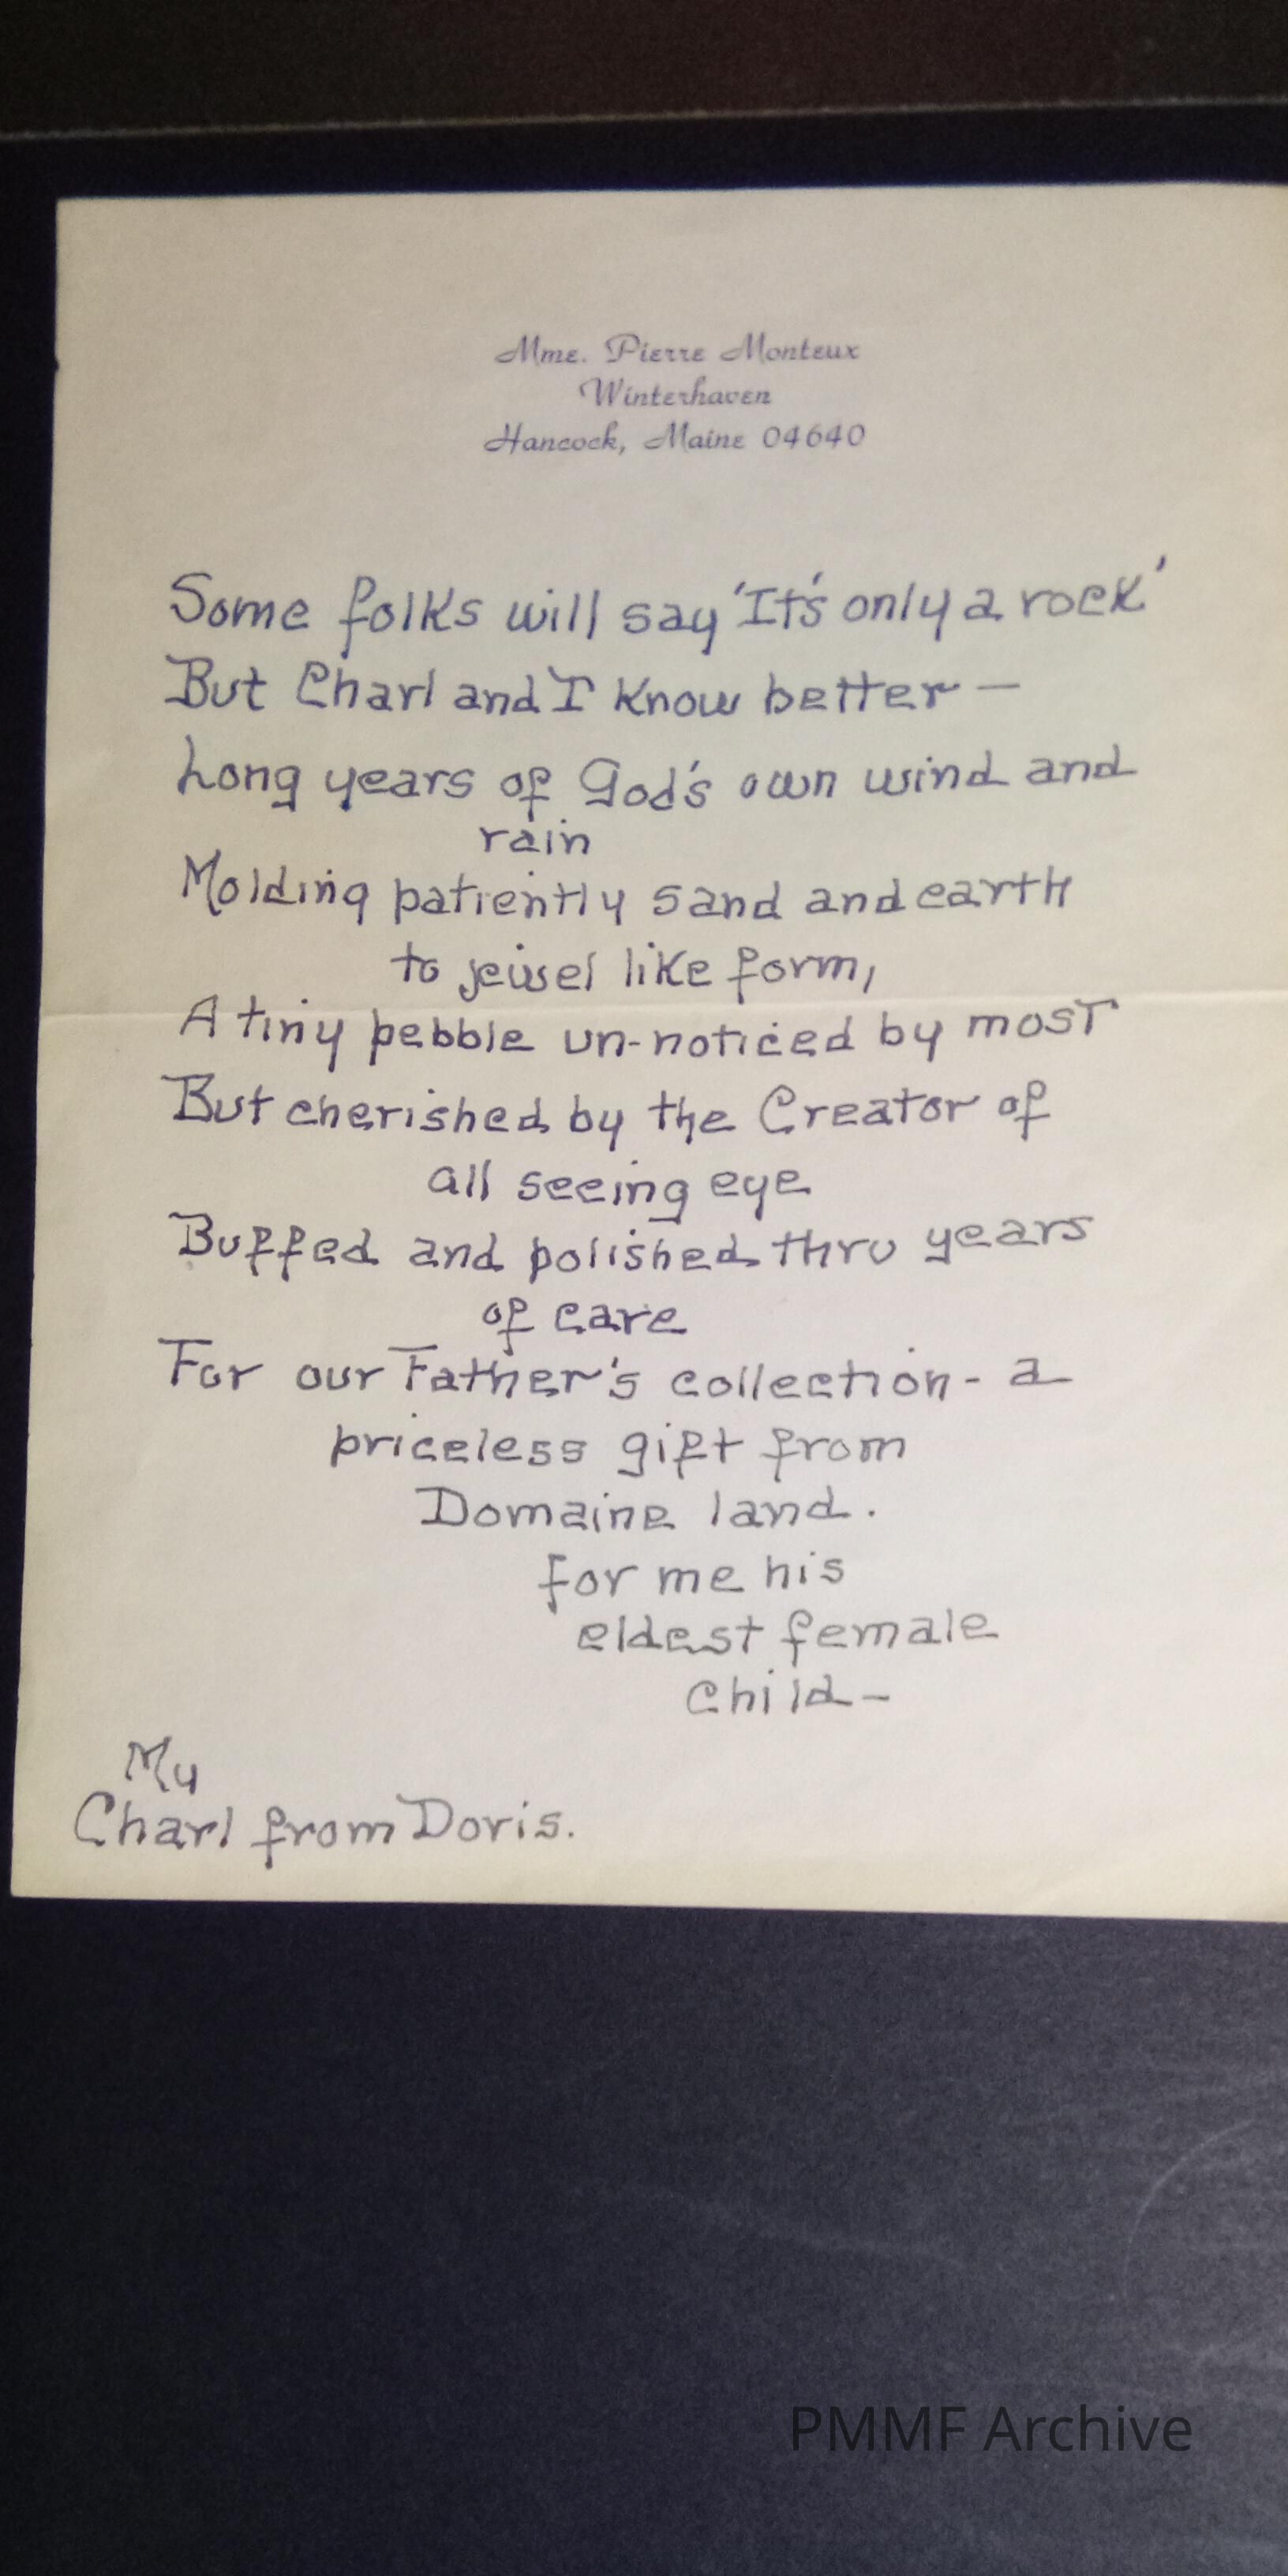 Mme. Pierre Monteux
Winterhaven
Hancock, Maine 04640
Some folks will say 'It's only a rock'
But Charl and I know better —
Long years of God's own wind and
rain
Molding patiently sand and earth
to jewel like form,
A tiny pebble un-noticed by most
But cherished by the Creator of
all seeing eye
Buffed and polished thru years
of care
For our Father's collection - a
priceless gift from
Domaine land.
for me his
eldest female
child -
My
Charl from Doris.
PMMF Archive